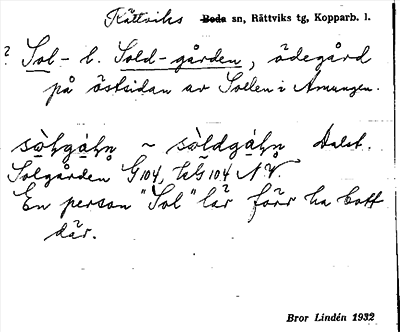 Rättviks Boda sn, Rättviks tg, Kopparb. l.
? Sol- l. Sold-gården, ödegård
på östsidan av Sollen i Amungen.
~ Dalst.
Solgården G 104, N.V.
En person "Sol" lär förr ha bott
där.
Bror Lindén 1932